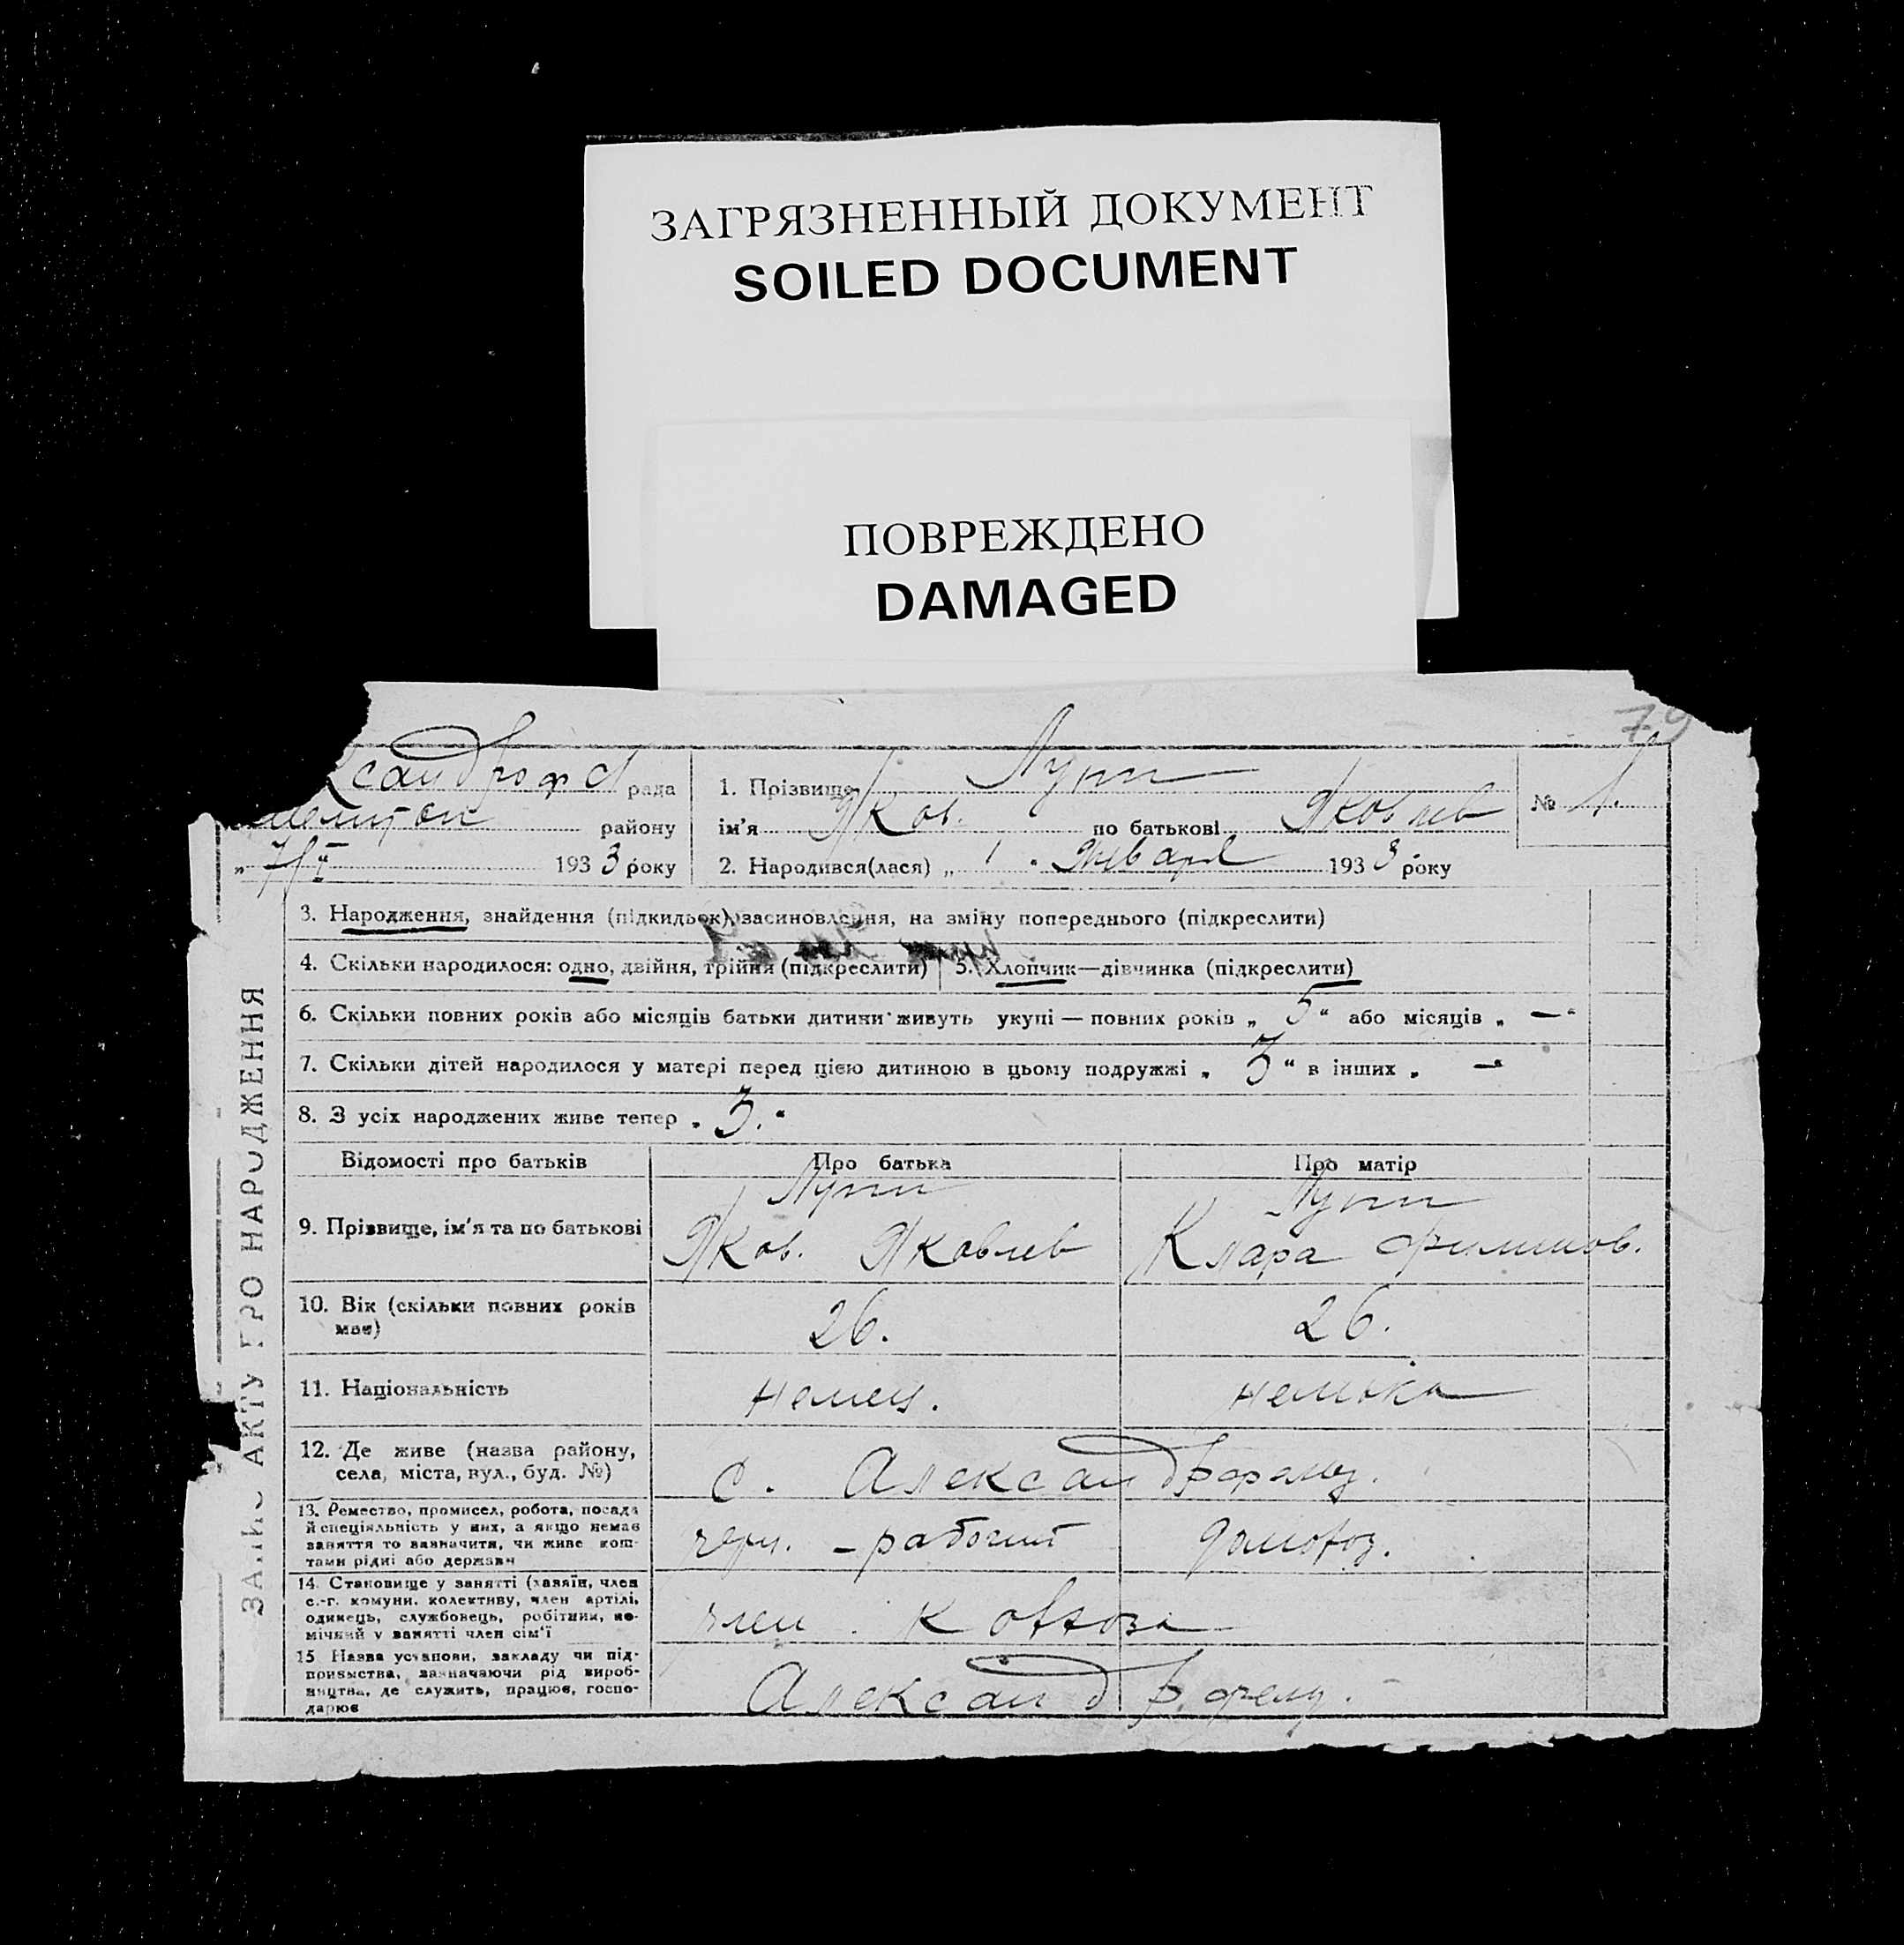 ЗАГРЯЗНЕННЫЙ ДОКУМЕНТ
SOILED DOCUMENT
ПОВРЕЖДЕНО
DAMAGED
79
рада
району
193 3 року
1. Прізвище
ім'я Яков. по батькові Яковлев
2. Народився(лася) „ 1 " Января 193 3 року
№ 1.
ЗАПИС АКТУ ПРО НАРОДЖЕННЯ
3. Народження, знайдення (підкидьок), засиновлення, на зміну попереднього (підкреслити)
4. Скільки народилося: одно, двійня, трійня (підкреслити) 5. Хлопчик—дівчинка (підкреслити)
6. Скільки повних років або місяців батьки дитини живуть укупі — повних років „ 5 “ або місяців „ — “
7. Скільки дітей народилося у матері перед цією дитиною в цьому подружжі „ 3 “ в інших „ — “
8. З усіх народжених живе тепер „ 3. “
Відомості про батьків Про батька Про матір
9. Прізвище, ім'я та по батькові
Яков. Яковлев
Клара Филипов.
10. Вік (скільки повних років
має)
26. 26.
11. Національність
немец. немька
12. Де живе (назва району,
села, міста, вул., буд. №)
с. Александрфельд.
13. Ремество, промисел, робота, посада
й спеціяльність у них, а якщо немає
заняття то вазначити, чи живе кош-
тами рідні або держави
рабочий домохоз.
14. Становище у занятті (хазяїн, член
с.-г. комуни, колективу, член артілі,
одинець, службовець, робітник, по-
мічний у занятті член сім'ї
член колхоза
15 Назва установи, закладу чи під-
приємства, зазначаючи рід вироб-
ництва, де служить, працює, госпо-
дарює
Александрфельд.